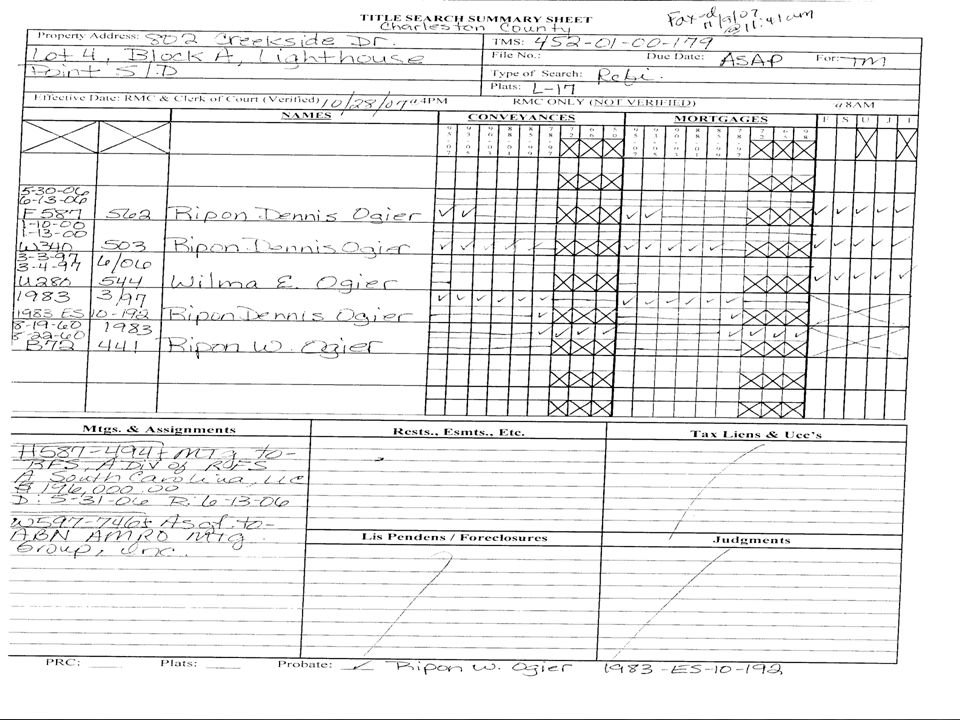 TITLE SEARCH SUMMARY SHEET
Charleston County
Fax-d 11/9/07 @ 11:41am
Property Address: 802 Creekside Dr.
TMS: 452-01-00-179
Lot 4, Block A, Lighthouse
File No.: Due Date: ASAP For: TM
Point S/D
Type of Search: Refi.
Plats: L-17
Effective Date: RMC & Clerk of Court (Verified) 10/28/07 @ 4PM RMC ONLY (NOT VERIFIED) @ 8AM
NAMES CONVEYANCES MORTGAGES F S U J I
5-30-06
6-13-06
E587 562 Ripon Dennis Ogier
1-10-00
1-13-00
W340 503 Ripon Dennis Ogier
3-3-97
3-4-97 6/06
U280 544 Wilma E. Ogier
1983 3/97
1983 ES 10-192 Ripon Dennis Ogier
8-19-60 1983
8-22-60
B72 441 Ripon W. Ogier
Mtgs. & Assignments
Rests., Esmts., Etc.
Tax Liens & Ucc's
H587-494: Mtg to-
BFS, A Div of RBFS
A South Carolina, LLC
$196,000.00
D: 5-31-06 R: 6-13-06
W597-746: Asgt. to-
ABN AMRO Mtg
Group, Inc.
Lis Pendens / Foreclosures
Judgments
PRC: Plats: Probate: ✓ Ripon W. Ogier 1983-ES-10-192